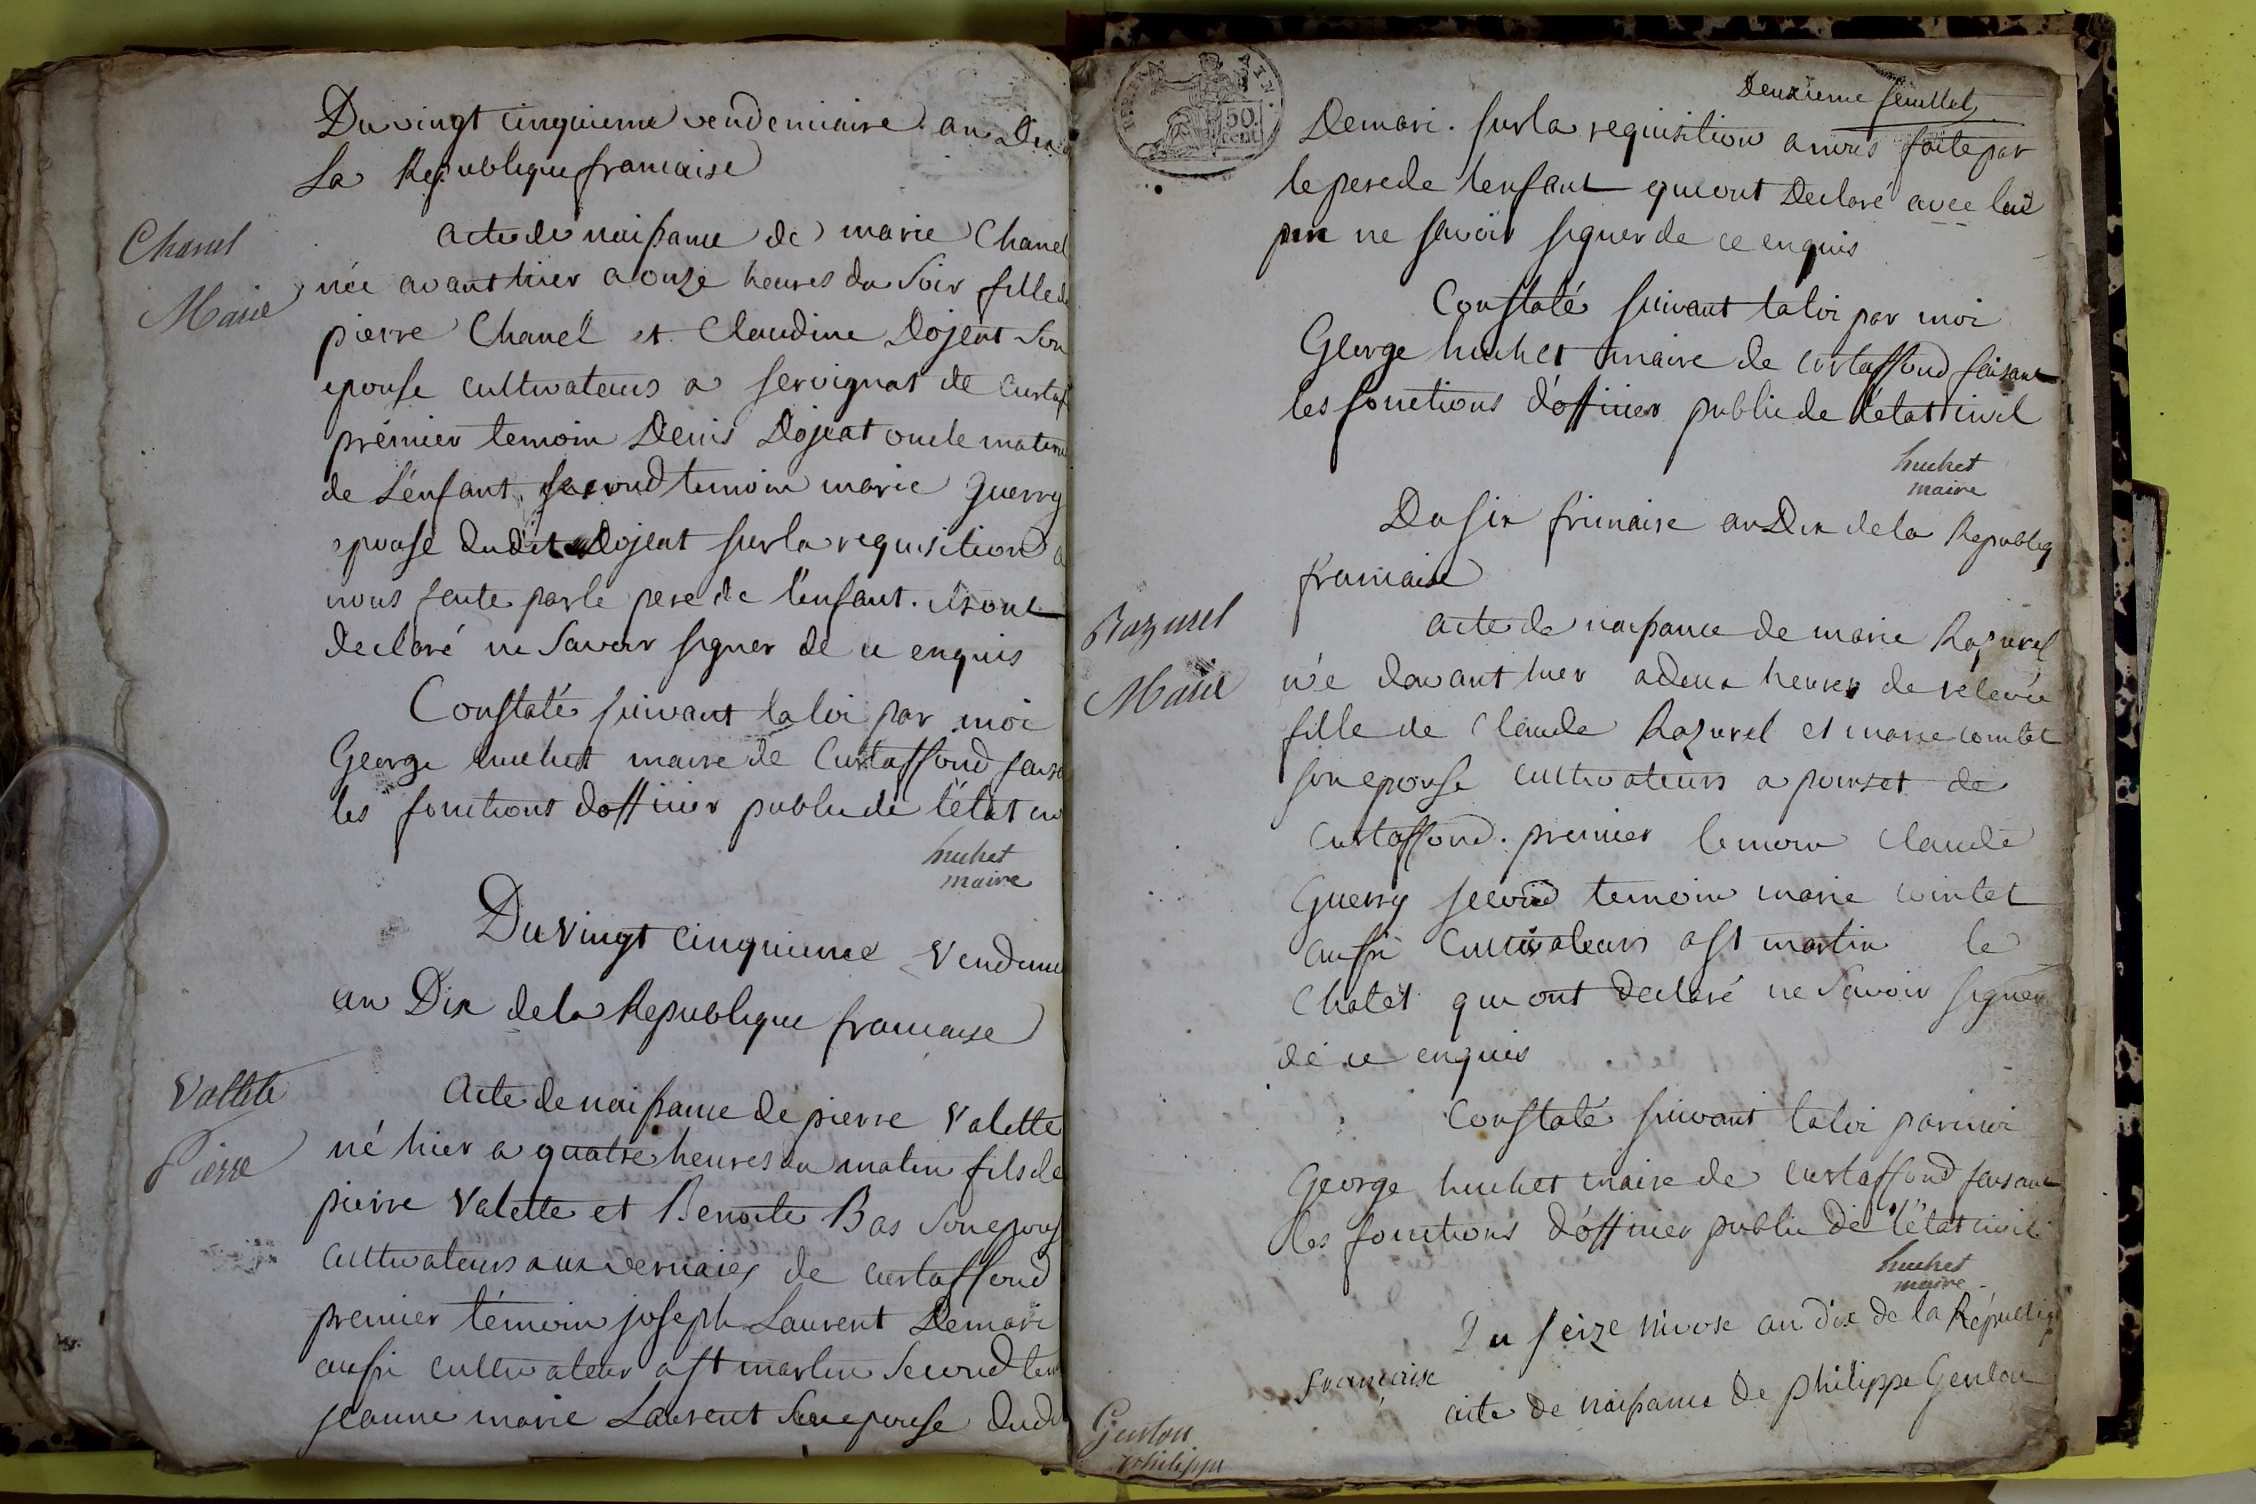 Du vingt cinquieme vendemiaire an Dix d
La Republique francaise
Chanel
Marie
acte de naissance de marie Chanel
née avant hier a onze heures du soir fille d
pierre Chanel et Claudine Dojeat son
epouse cultivateurs a servignat de Curtaf
prémier temoin Denis Dojeat oncle matern
de L'enfant, second temoin marie Guerry
epouse dudit Dojeat sur la requisition a
nous faite par le pere de l'enfant. ils ont
declaré ne savoir signer de ce enquis
Constaté suivant la loi par moi
George huchet maire de Curtaffond faisa
les fonctions d'officier public de l'état ci
huchet
maire
Du vingt cinquieme vendemi
an Dix de la Republique francaise
Vallete
Pierre
Acte de naissance de pierre Valette
né hier a quatre heures du matin fils de
pierre Valette et Benoite Bas son epous
cultivateurs aux vernaies de curtaffond
premier témoin joseph Laurent Demari
aussi cultivateur a st martin second tem
jeanne marie Laurent epouse dud
50
cent
Deuxieme feuillet
Demari. sur la requisition a nous faite par
le pere de l'enfant qui ont Declaré avec led
pere ne savoir signer de ce enquis
Constaté suivant la loi par moi
George huchet maire de curtaffond faisant
les fonctions d'officier public de l'état civil
huchet
maire
Du six frimaire an Dix de la Republiq
francaise
Razurel
Marie
acte de naissance de marie Razurel
née davant hier a deux heures de relevée
fille de Claude Razurel et marie cointet
son epouse cultivateurs a poinset de
Curtaffond. premier temoin Claude
Guerry second temoin marie cointet
aussi cultivateurs a st martin le
Chatel qui ont declaré ne savoir signer
de ce enquis
Constaté suivant la loi par moi
George huchet maire de curtaffond faisant
les fonctions d'officier public de l'état civil
huchet
maire
Du seize nivose an dix de la Républiq
francaise
Genton
philippe
acte de naissance de philippe Genton